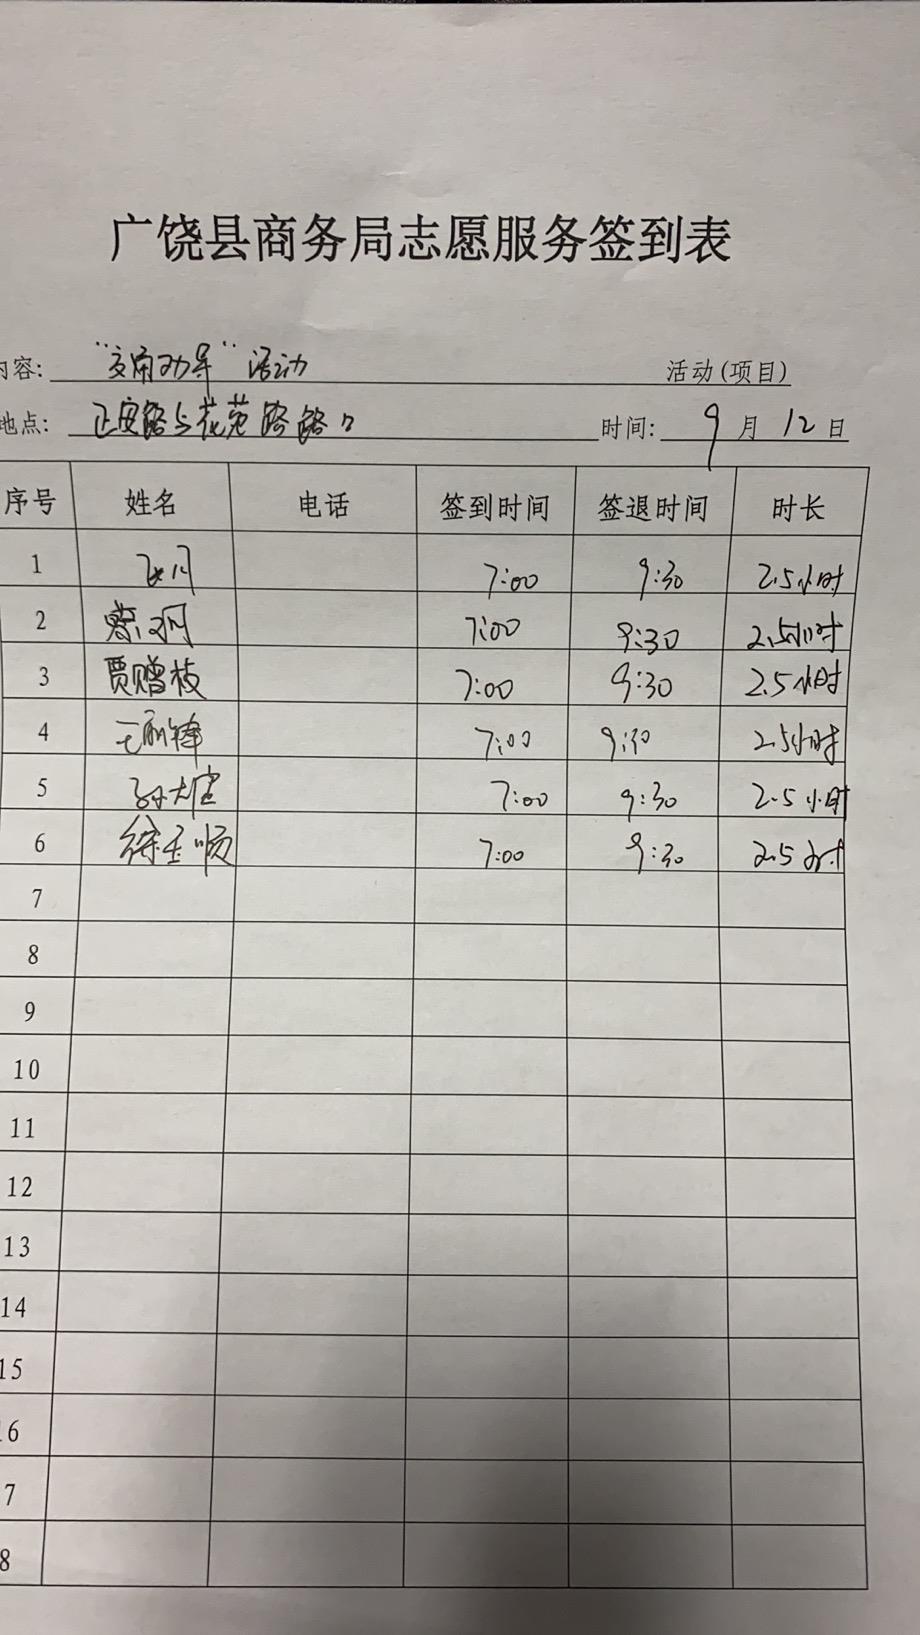 广饶县商务局志愿服务签到表
内容: "交通劝导"活动 活动(项目)
地点: 正安路与花苑路路口 时间: 9月12日
序号 姓名 电话 签到时间 签退时间 时长
1 7:00 9:30 2.5小时
2 7:00 9:30 2.5小时
3 贾赠枝 7:00 9:30 2.5小时
4 7:00 9:30 2.5小时
5 7:00 9:30 2.5小时
6 徐玉顺 7:00 9:30 2.5小时
7
8
9
10
11
12
13
14
15
16
7
8